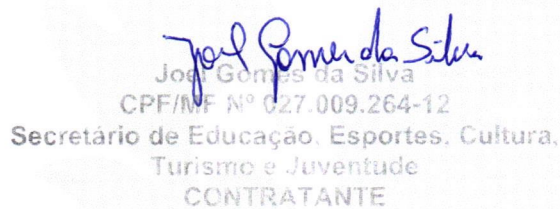 Joel Gomes da Silva
Joel Gomes da Silva
CPF/MF Nº 027.009.264-12
Secretário de Educação, Esportes, Cultura,
Turismo e Juventude
CONTRATANTE